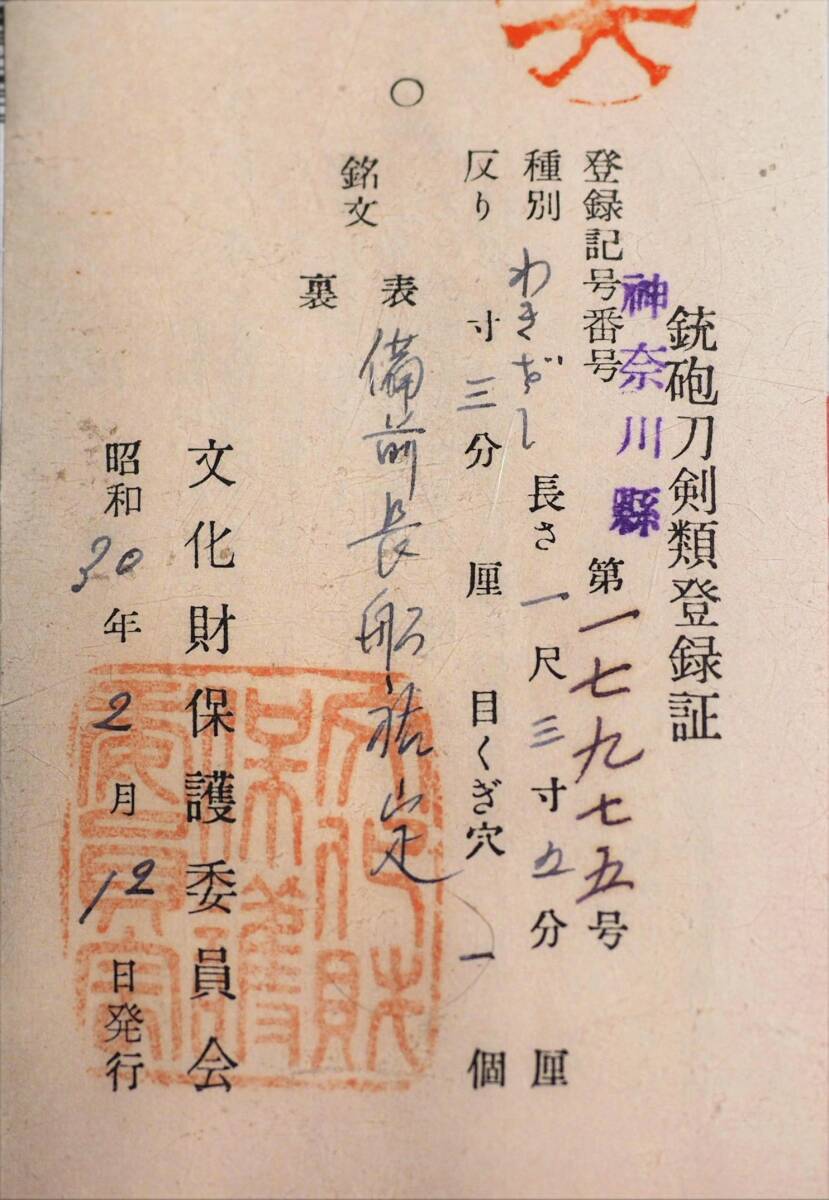 銃砲刀剣類登録証
神奈川縣
登録記号番号 第一七九七五号
種別 わきざし 長さ 一尺三寸五分 厘
反り 寸三分 厘 目くぎ穴 一個
銘文
表 備前長船祐定
裏
文化財保護委員会
昭和30年2月12日発行
文化財保護委員会